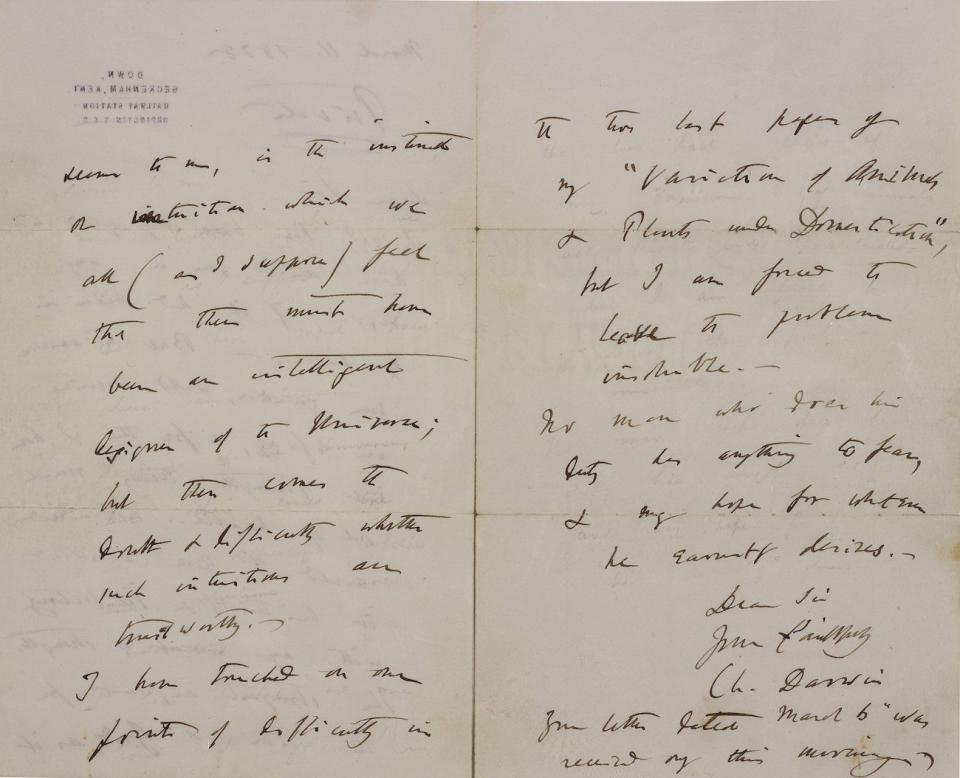 DOWN,
BECKENHAM, KENT
RAILWAY STATION
ORPINGTON. S.E.R.
March 11. 1878
Private
seems to me, is the instinct
or intuition which we
all (as I suppose) feel
that there must have
been an intelligent
designer of the Universe;
but then comes the
doubt & difficulty whether
such intuitions are
trustworthy.—
I have touched on one
point of difficulty in
the two last pages of
my "Variation of Animals
& Plants under Domestication",
but I am forced to
leave the problem
insoluble.—
No man who does his
duty has anything to fear,
& may hope for whatever
he earnestly desires.—
Dear Sir
Yours faithfully
Ch. Darwin
Your letter dated March 6th was
received only this morning—